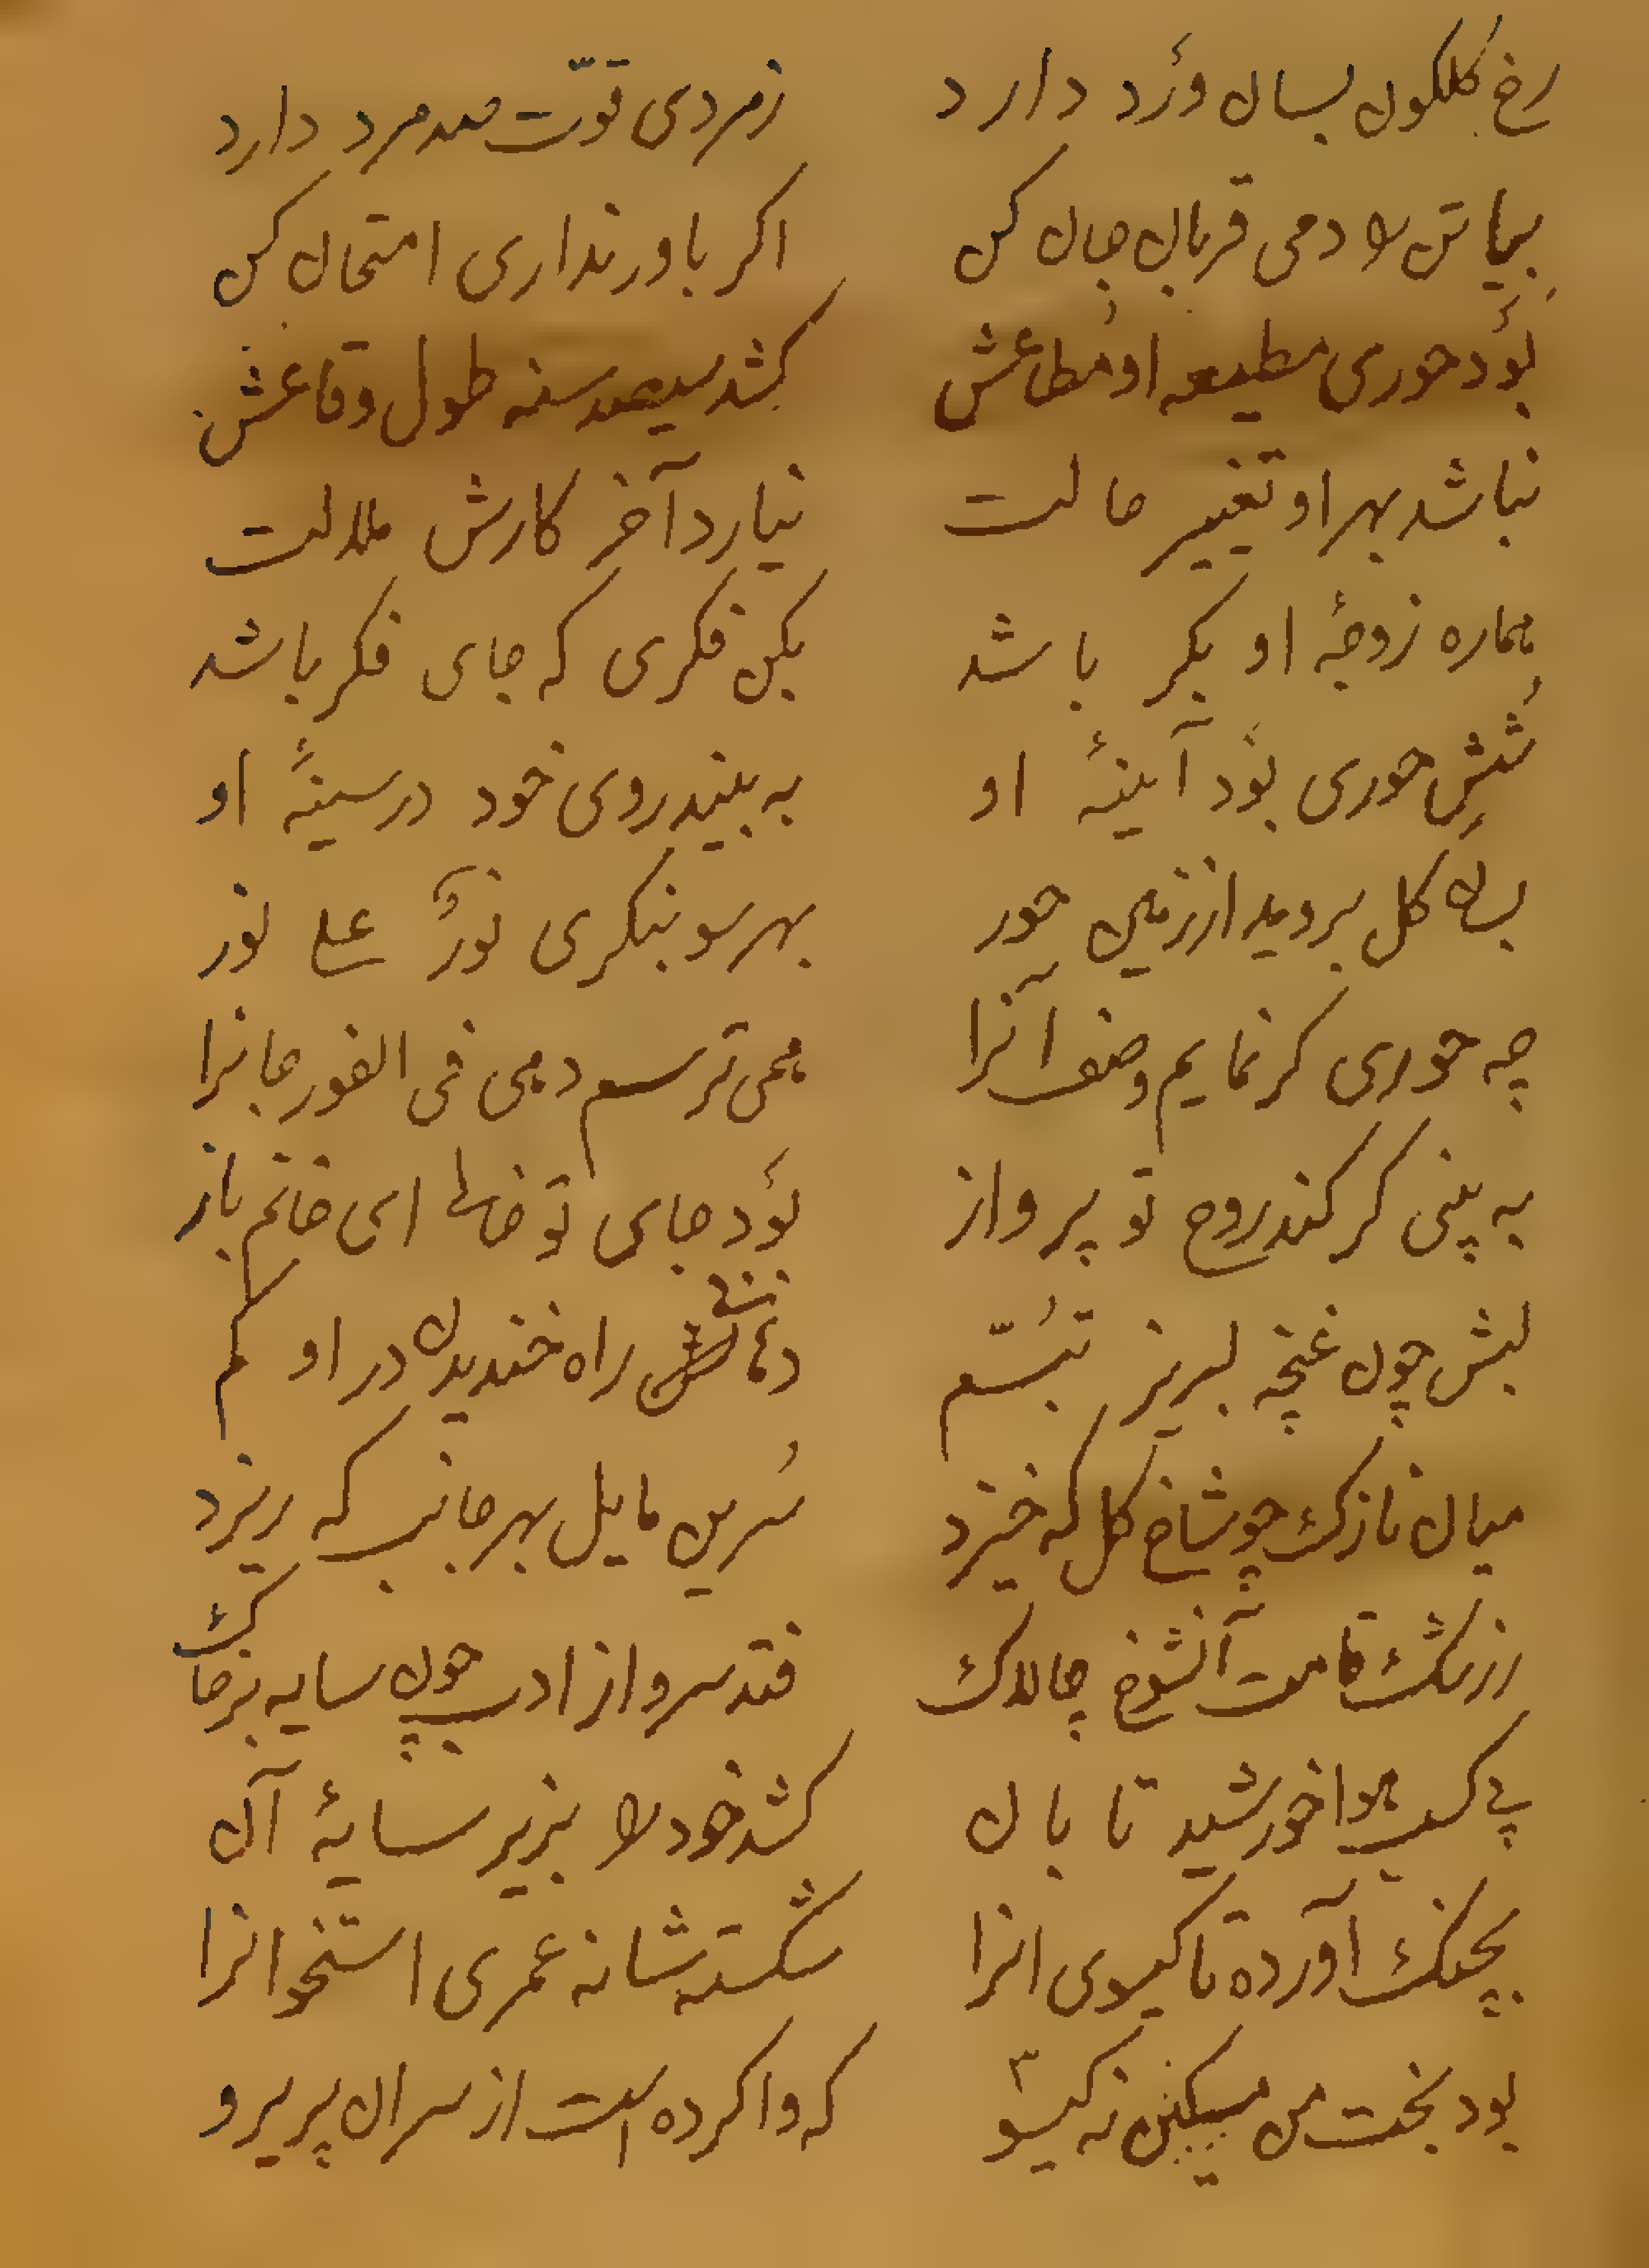 رخ گلکون بسان وَرد دارد زمردی قوّت صد مرد دارد
بیا تن را دمی قربان جان کن اکر باور نداری امتحان کن
بُوَد حوری مطیعه او مُطاعش کشد سیصد سنه طول وقاعش
نباشد بهر او تغییر حالت نیارد آخر کارش ملالت
هماره زوجهٔ او بکر باشد بکن فکری که جای فکر باشد
تنش حوری بُوَد آیینهٔ او به بیند روی خود در سینهٔ او
بسان کل بروید از زمین حور بهر سو بنکری نورٌ علی نور
چه حوری کر نمایم وصف آنرا همی ترسم دهی فی الفور جانرا
به بینی کر کند روح تو پرواز بُوَد جای تو خالی ای خانم باز
لبش چون غنچه لبریز تبسّم دهانش راه خندیدن در او کم
میان نازک چو شاخ کل که خیزد سُرین مایل بهر جانب که ریزد
ز رشک قامت آنشوخ چالاک فتد سرو از ادب چون سایه بر خاک
پی کسب هوا خورشید تابان کشد خود را بزیر سایهٔ آن
بچنک آورده تا کیسوی انرا شکسته شانه عمری استخوانرا
بود بخت من مسکین نه کیسو ۳ که وا کرده است از سر ان پریرو